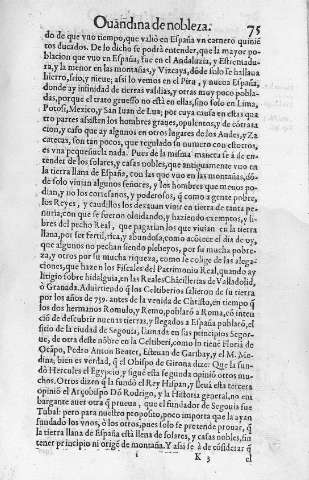 Ouandina de nobleza. 75
do de que vno tiempo, que valiò en España vn carnero quiniẽ
tos ducados. De lo dicho se podrà entender, que la mayor po-
blacion que vuo en España, fue en el Andaluzia, y Estremadu-
ra, y la menor en las montañas, y Vizcaya, dõde solo se hallaua
hierro, frio, y nieue; assi lo vemos en el Piru, y nueua España,
donde ay infinidad de tierras valdias, y otras muy poco pobla-
das, porque el trato gruesso no està en ellas, sino solo en Lima,
Potosi, Mexico, y San Iuan de Lua; por cuya causa en estas qua
tro partes assisten los hombres graues, opulentos, y de cõtrata
cion, y caso que ay algunos en otros lugares de los Andes, y Za
catecas, son tan pocos, que regulado su numero con estotros,
es vna pequeñuela nada. Pues de la misma manera se à de en-
tender de los solares, y casas nobles, que antiguamente vuo en
la tierra llana de España, con las que vuo en las montañas, dõ-
de solo viuian algunos señores, y los hombres que menos po-
dian, y no los cortesanos, y poderosos, q̃ como a gente pobre,
los Reyes, y caudillos los dexauan viuir en tierra de tanta pe-
nuria, con que se fueron oluidando, y haziendo exemptos, y li-
bres del pecho Real, que pagarian los que viuian en la tierra
llana, por ser fertil, rica, y abundosa, como acõtece el dia de oy,
que algunos no pechan siendo plebeyos, por su mucha pobre-
za, y otros por su mucha riqueza, como se colige de las alega-
ciones, que hazen los Fiscales del Patrimonio Real, quando ay
litigio sobre hidalguia, en las Reales Chãcillerias de Valladolid,
ò Granada. Aduirtiendo q̃ los Celtiberios salieron de su tierra
por los años de 759. antes de la venida de Christo, en tiempo q̃
los dos hermanos Romulo, y Remo, poblarõ a Roma, cõ inten
ciõ de descubrir nueuas tierras, y llegados a España poblarõ, el
sitio de la ciudad de Segouia, llamada en sus principios Segor-
ue, de otra deste nõbre en la Celtiberi, como lo tiene Floria de
Ocãpo, Pedro Anton Beuter, Esteuan de Garibay, y el M. Me-
dina, bien es verdad, q̃ el Obispo de Girona dize: Que la fun-
dò Hercules el Egypcio y sigue està segunda opinió otros mu-
chos. Otros dizen q̃ la fundò el Rey Hispan, y lleuà esta tercera
opiniõ el Arçobispo Dõ Rodrigo, y la Historia general, no em
bargante auer otra q̃ prueua, que el fundador de Segouia fue
Tubal: pero para nuestro proposito, poco importa que la ayan
fundado los vnos, ò los otros, pues solo se pretende prouar, q̃
la tierra llana de España està llena de solares, y casas nobles, sin
tener principio ni origẽ de montaña. Y assi se à de cõsiderar q̃
K 3 el